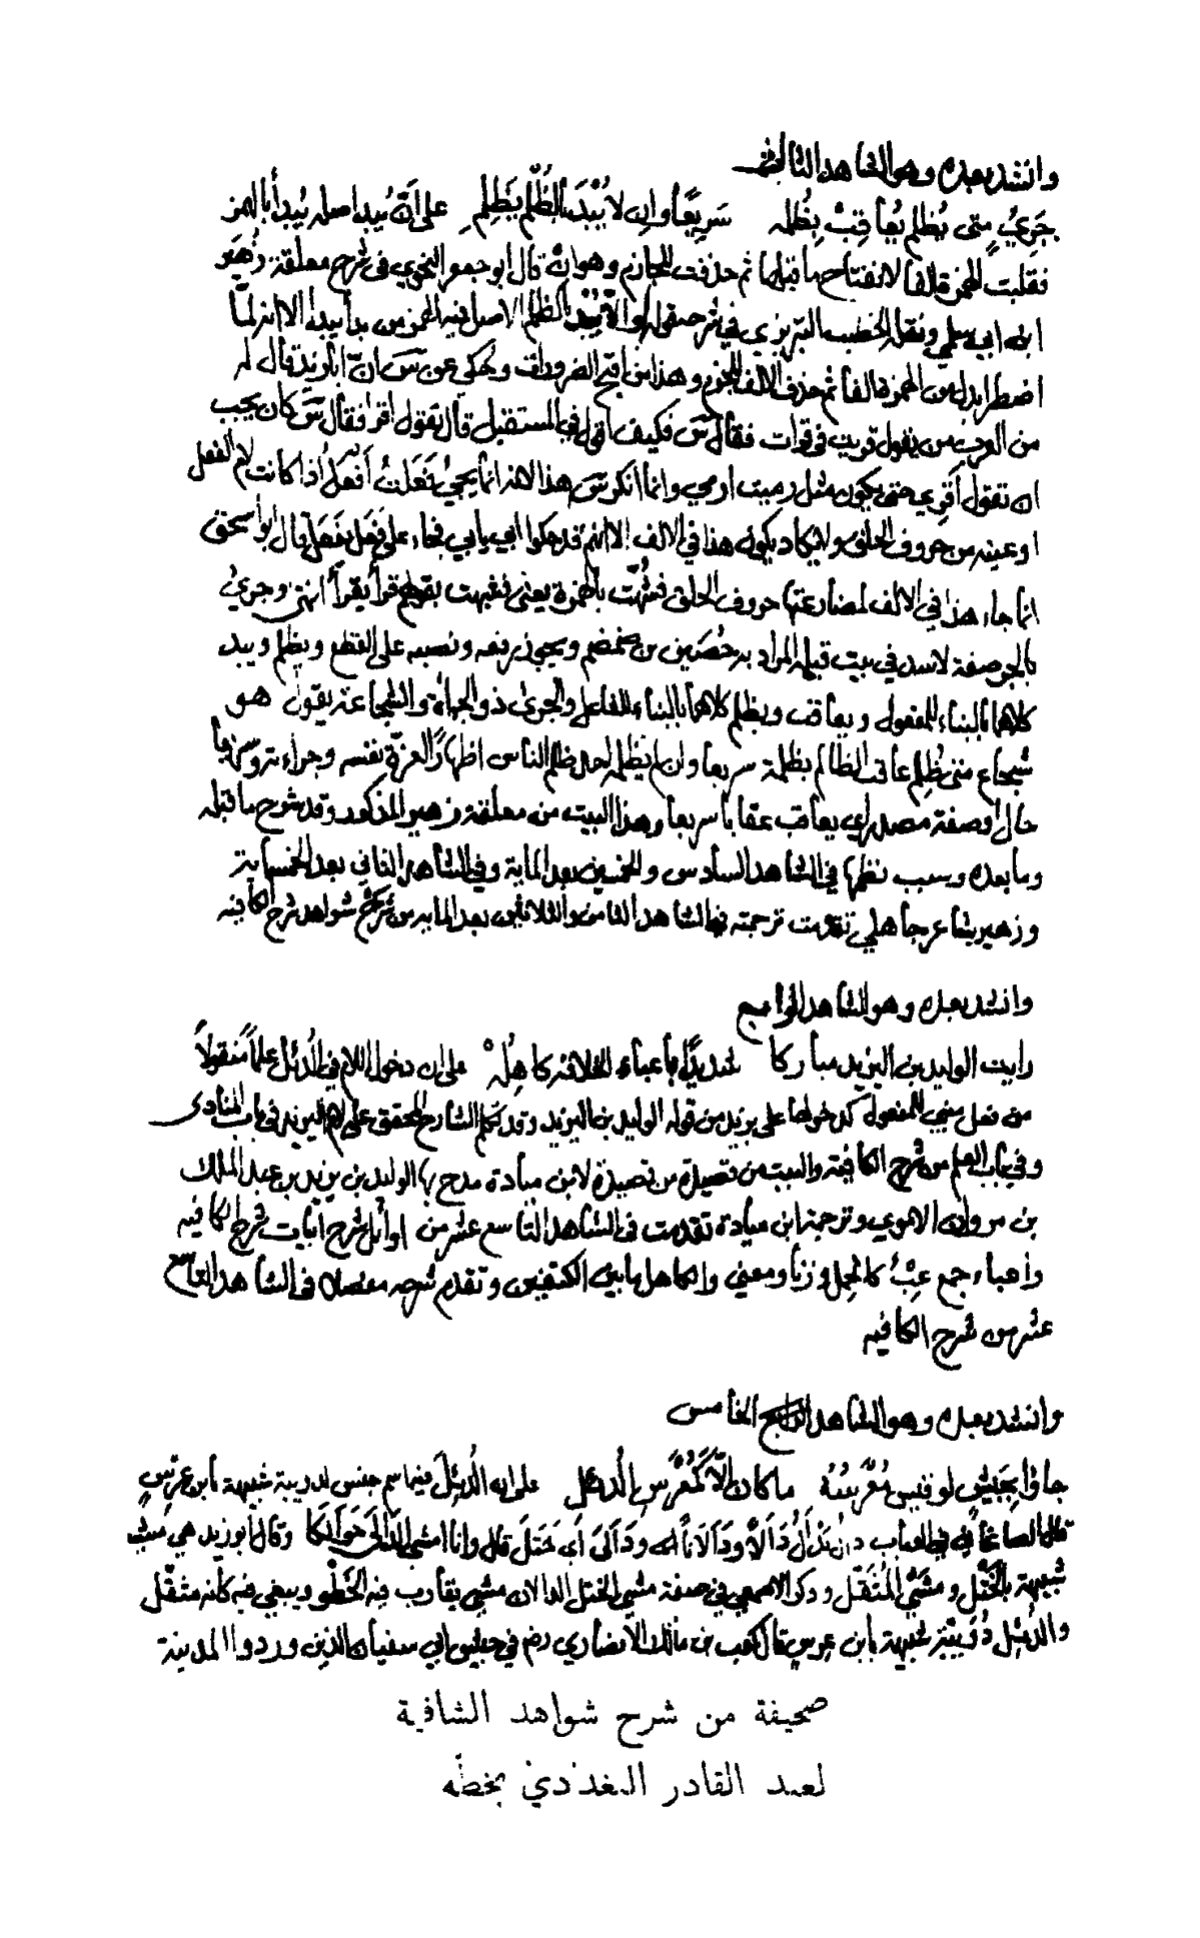 وانشد بعده وهو الشاهد الثالث
جَرِيءٍ متى يُظلم يُعاقِبْ بِظُلمه سَرِيعًا وان لا يُبْدَ بالظُلْمِ يَظْلِمِ على انّ يُبد اصله يُبدأ بالهمز
فقلبت الهمزة الفا لانفتاح ما قبلها ثم حذفت للجازم وهو ان قال ابو جعفر النحوي في شرح معلقة زُهَير
ابن ابي سلمى ونقله الخطيب التبريزي في شرحه قوله والّا يُبْدَ بالظلم الاصل فيه الهمز من بدأ يبدأ الا انه لمّا
اضطر ابدل من الهمزة الفا ثم حذف الالف للجزم وهذا من اقبح الضرورات وحكي عن سَ انّ ابا زيد قال له
من العرب من يقول قريت في قرات فقال سَ فكيف اقول في المستقبل قال تقول اقرا فقال سَ كان يجب
ان تقول اَقرِي حتى يكون مثل رميت ارمي وانما انكر سَ هذا لانه انما يجيُ فَعَلتُ اَفْعَلُ اذا كانت لام الفعل
او عينه من حروف الحلق ولا يكاد يكون هذا في الالف الا انهم قد حكوا ابي يابي فجاء على فَعَل يَفعَل قال ابو اسحق
انما جاء هذا في الالف لمضارعتها حروف الحلق فشُبّهت بالهمزة يعني فشبهت بقولهم قرأ يقرأ انتهى وجريءٍ
بالجر صفة لاسد في بيت قبله المراد به حُصَين بن ضمضم ويجوز رفعه ونصبه على القطع ويظلم ويبد
كلاهما بالبناء للمفعول ويعاقب ويظلم كلاهما بالبناء للفاعل والجريء ذو الجراة والشجاعة يقول هو
شجاع متى يُظلم عاقب الظالم بظلمه سريعا وان لم يظلمه احد ظلم الناس اظهارًا لعزة نفسه وجراءته وسريعا
حال او صفة مصدر اي يعاقب عقابا سريعا وهذا البيت من معلقة زهير المذكور وقد شرح ما قبله
وما بعده وسبب نظمها في الشاهد السادس والخمسين بعد الماية وفي الشاهد الثاني بعد الخمسماية
وزهير شاعر جاهلي تقدمت ترجمته في الشاهد الثامن والثلاثين بعد المايه من شرح شواهد شرح الكافيه
وانشد بعده وهو الشاهد الرابع
رايت الوليد بن اليزيد مباركا شديدًا باعباء الخلافة كاهِلُهْ على ان دخول اللام في الدُئِل علمًا منقولًا
من فعل مبني للمفعول كدخولها على يزيد من قوله الوليد بن اليزيد وقد تكلم الشارح المحقق على لام اليزيد في باب المنادى
وفي باب العلم من شرح الكافية والبيت من قصيدة لابن ميادة مدح بها الوليد بن يزيد بن عبد الملك
بن مروان الاموي وترجمة ابن ميادة تقدمت في الشاهد التاسع عشر من اوائل شرح ابيات شرح الكافيه
واعباء جمع عِبْءٍ كالحِمل وزنا ومعنى والكاهل ما بين الكتفين وتقدم شرحه مفصلا في الشاهد التاسع
عشر من شرح الكافيه
وانشد بعده وهو الشاهد الخامس
جاؤا بجَيشٍ لو قيسَ مُعْرَسُهُ ما كان اِلّا كَمُعْرَسِ الدُئِلِ على ان الدُئِلَ فيه اسم جنس لدويبة شبيهة بابن عِرسٍ
قال الصاغاني في العباب دال يَدْأَلُ دَأْلًا ودَأَلَانًا ودَأَلَى اَي خَتَلَ قال وانا امشي الدَّأَلَى حَوالَكا وقال ابو زيد هي مشيةٌ
شبيهة بالخَتْلِ ومَشْيُ المُثْقَل وذكر الاصمعي في صفة مشي الخيل الدالان مشيٌ يقارب فيه الخَطْو ويبغي فيه كانه مثقل
والدُئِل دُوَيبّة شبيهة بابن عِرسٍ قال كعب بن مالك الانصاري رضه في جيش ابي سفيان الذين وردوا المدينة
صحيفة من شرح شواهد الشافية
لعبد القادر البغدادي بخطّه